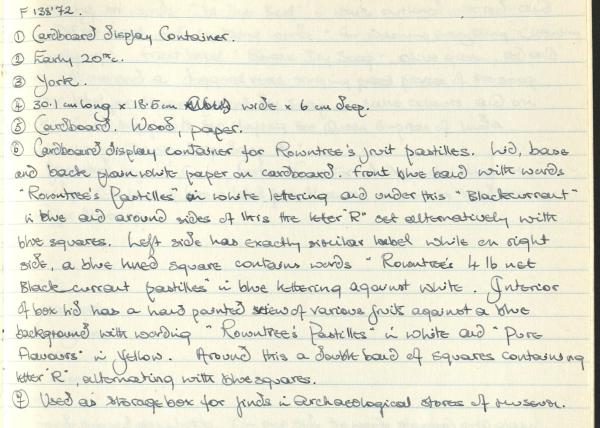 F 138'72.
① Cardboard display Container.
② Early 20thc.
③ York.
④ 30.1 cm long x 18.5 cm wide x 6 cm deep.
⑤ Cardboard. Wood, paper.
⑥ Cardboard display container for Rowntree's fruit pastilles. Lid, base
and back plain white paper on cardboard. Front blue band with words
"Rowntree's Pastilles" in white lettering and under this "Blackcurrant"
in blue and around sides of this the letter "R" set alternatively with
blue squares. Left side has exactly similar label while on right
side, a blue lined square contains words "Rowntree's 4 lb net
Black currant pastilles" in blue lettering against white. Interior
of box lid has a hand painted view of various fruits against a blue
background with wording "Rowntree's Pastilles" in white and "Pure
flavours" in Yellow. Around this a double band of squares containing
letter "R", alternating with blue squares.
⑦ Used as storage box for finds in Archaeological stores of museum.